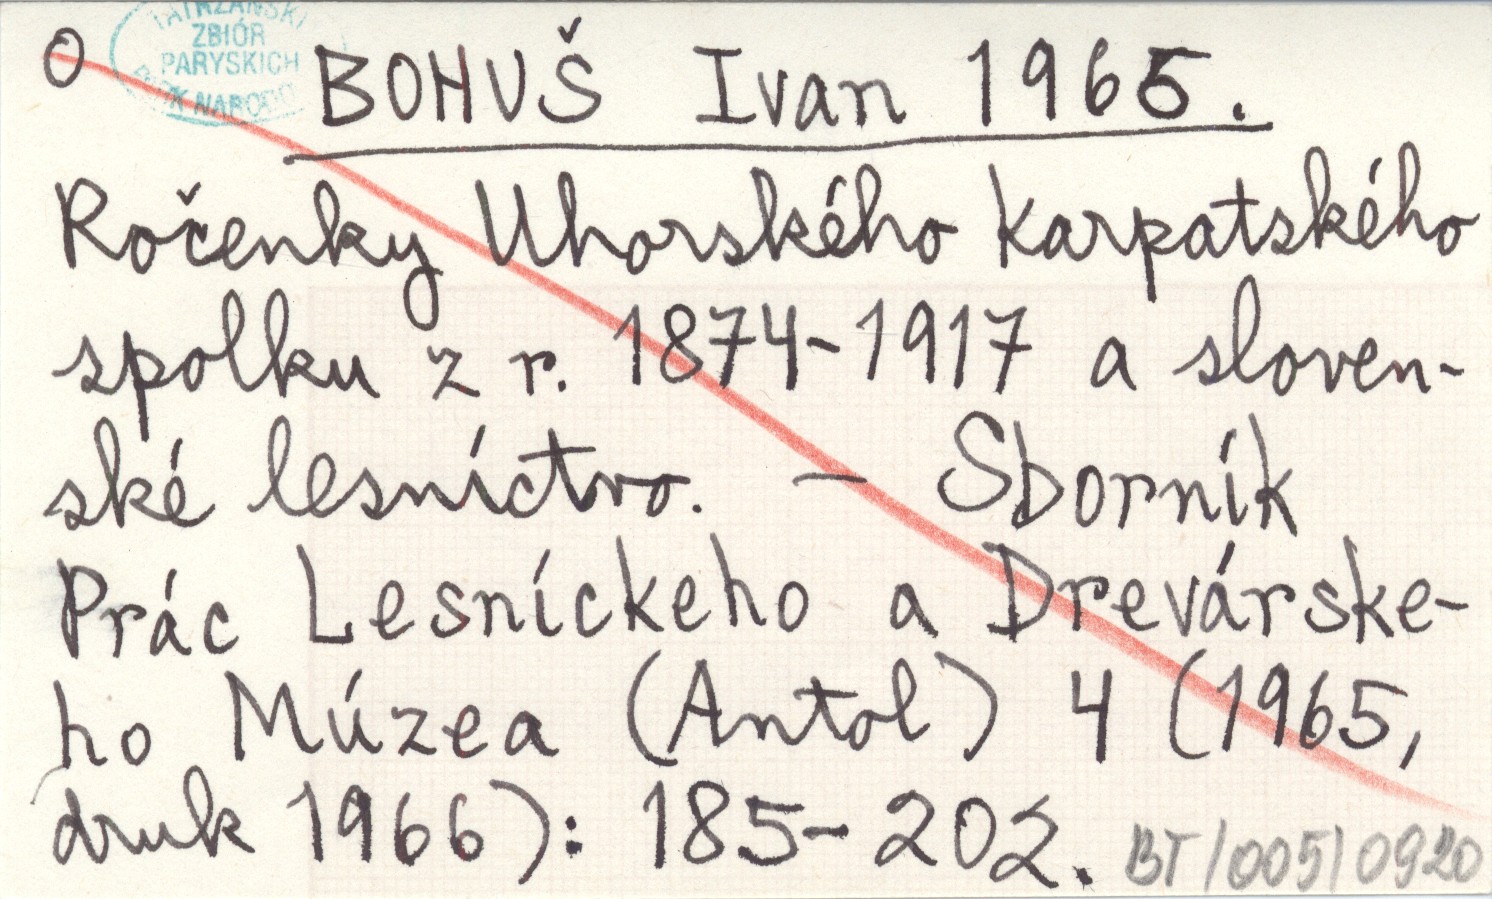 TATRZAŃSKI
ZBIÓR
PARYSKICH
NAROD
O BOHUŠ Ivan 1965.
Ročenky Uhorského Karpatského
spolku z r. 1874-1917 a sloven-
ské lesníctvo. — Sborník
Prác Lesníckeho a Drevárske-
ho Múzea (Antol) 4 (1965,
druk 1966): 185-202.
BT/005/0920